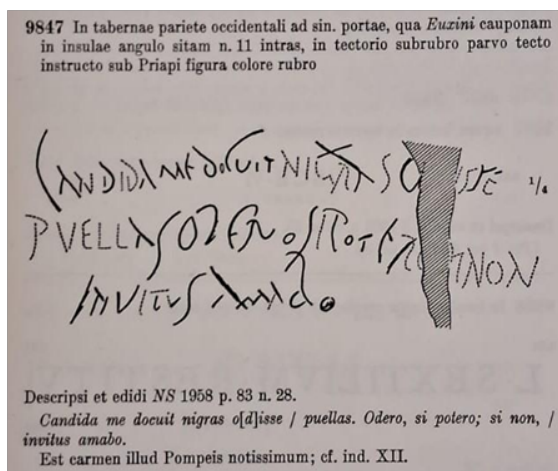 9847 In tabernae pariete occidentali ad sin. portae, qua Euxini cauponam
in insulae angulo sitam n. 11 intras, in tectorio subrubro parvo tecto
instructo sub Priapi figura colore rubro
CANDIDA ME DOCVIT NIGRAS O ISSE ¼
PVELLAS ODERO SI POTERO SI NON
INVITVS AMABO
Descripsi et edidi NS 1958 p. 83 n. 28.
Candida me docuit nigras o[d]isse / puellas. Odero, si potero; si non, /
invitus amabo.
Est carmen illud Pompeis notissimum; cf. ind. XII.